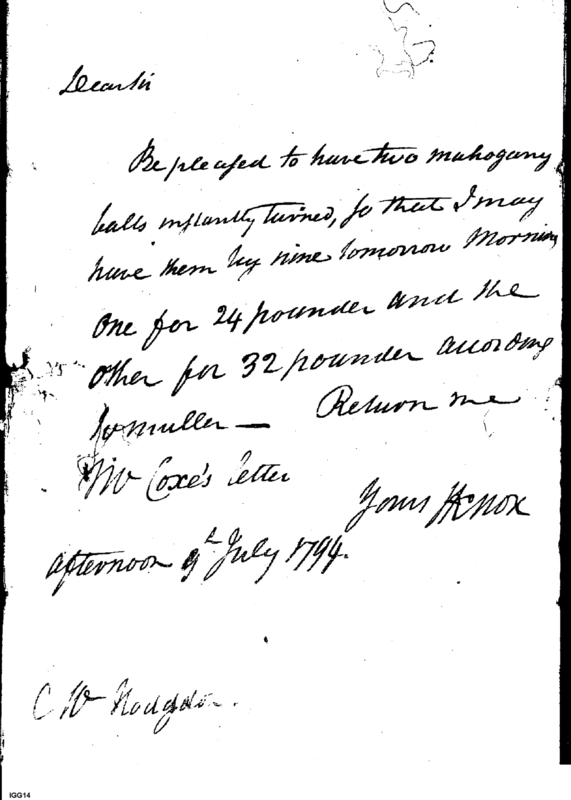 Dear Sir
Be pleased to have two mahogany
balls instantly turned, so that I may
have them by nine tomorrow Morning
One for 24 pounder and the
other for 32 pounder according
to muller — Return me
Mr Coxe's letter
Yours HKnox
afternoon 9th July 1794.
Hodgdon.
IGG14